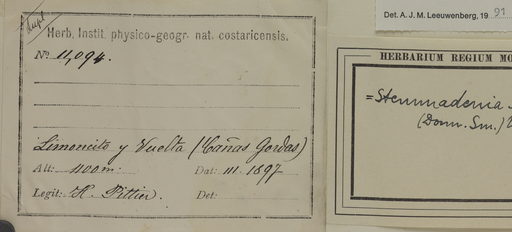 dupl
Herb. Instit. physico-geogr. nat. costaricensis.
No. 11,094.
Limoncito y Vuelta (Cañas Gordas)
Alt: 1100 m: Dat: III. 1897
Legit: H. Pittier. Det:
Det. A. J. M. Leeuwenberg, 19 91
HERBARIUM REGIUM MO
= Stemmadenia
(Donn. Sm.)